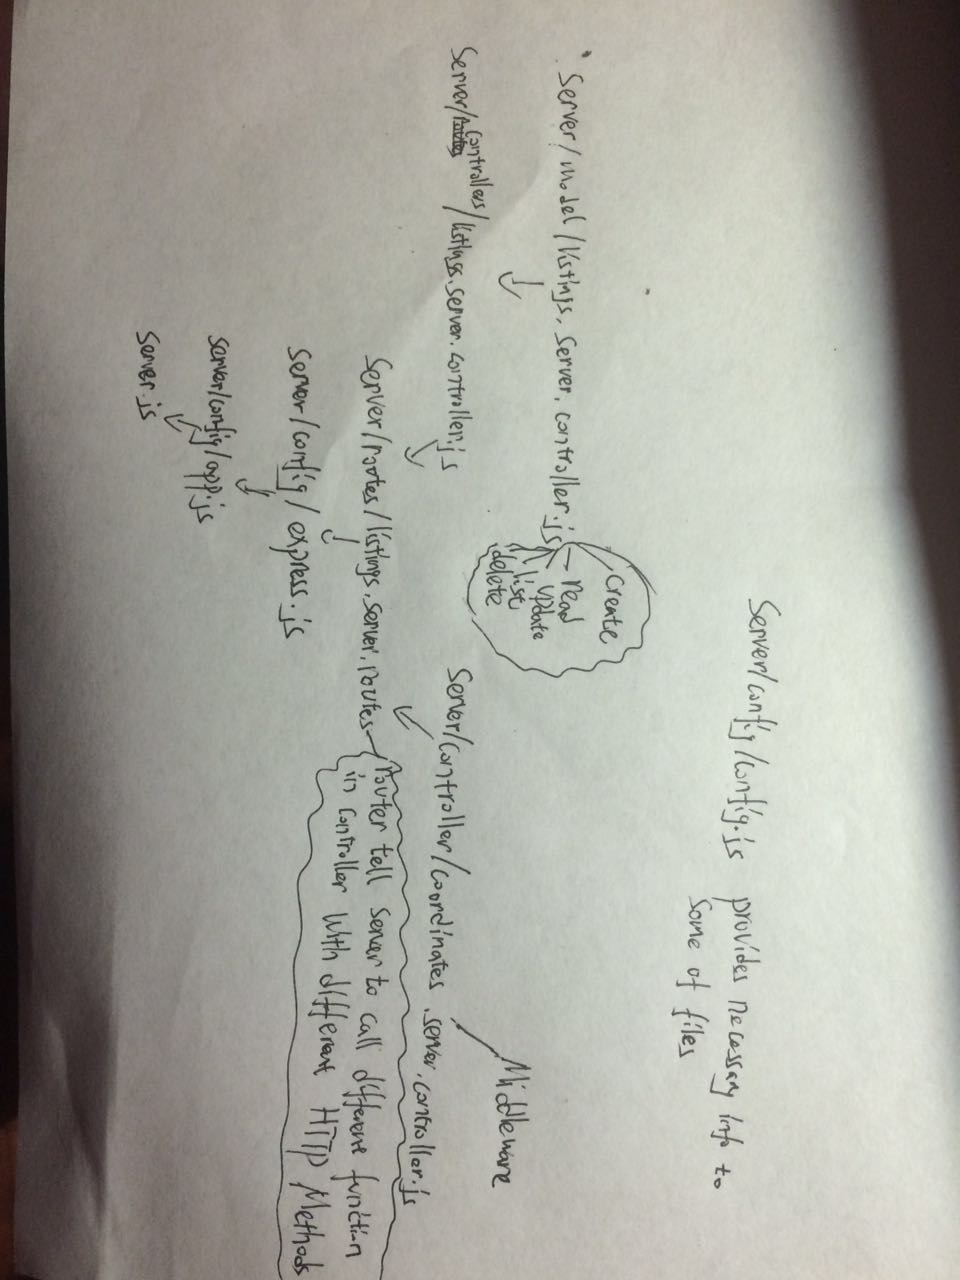 Server/config/config.js provides necessary info to
Some of files
Create
Server/model/listings.server.controller.js
read
update
list
delete
Middleware
Server/routes controllers/listings.server.controller.js
Server/controller/coordinates.server.controller.js
Server/routes/listings.server.routes
router tell server to call different function
in controller with different HTTP Methods
server/config/express.js
server/config/app.js
Server.js